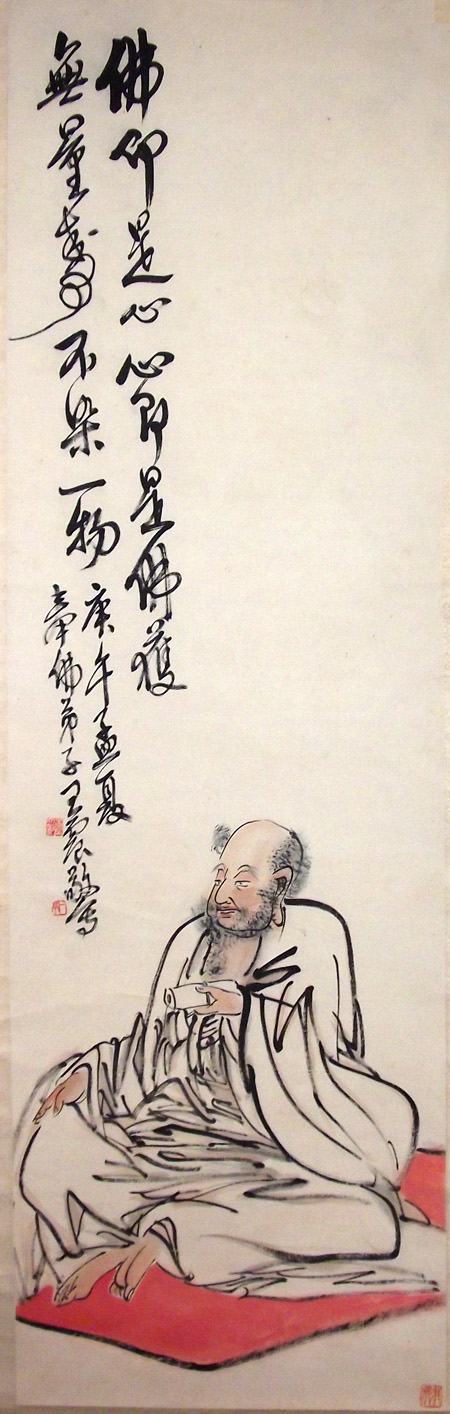 佛即是心心即是佛獲
無量壽不染一物
庚午孟夏
奉佛弟子王震敬寫